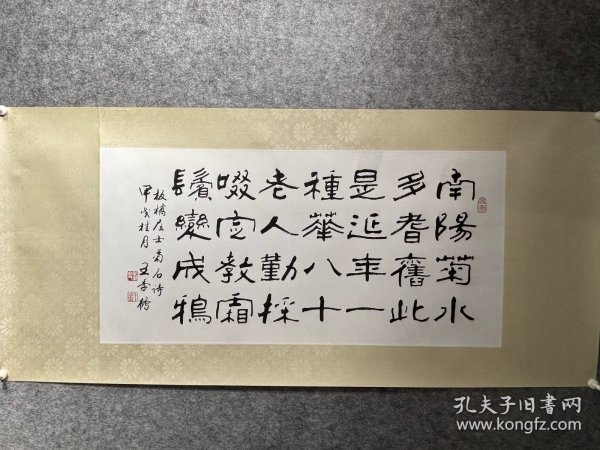 南陽菊水
多耆舊此
是延年一
種華八十
老人勤採
啜定教霜
鬢變成鴉
板橋居士菊石诗
甲戌桂月 王李鹤
孔夫子旧书网
www.kongfz.com